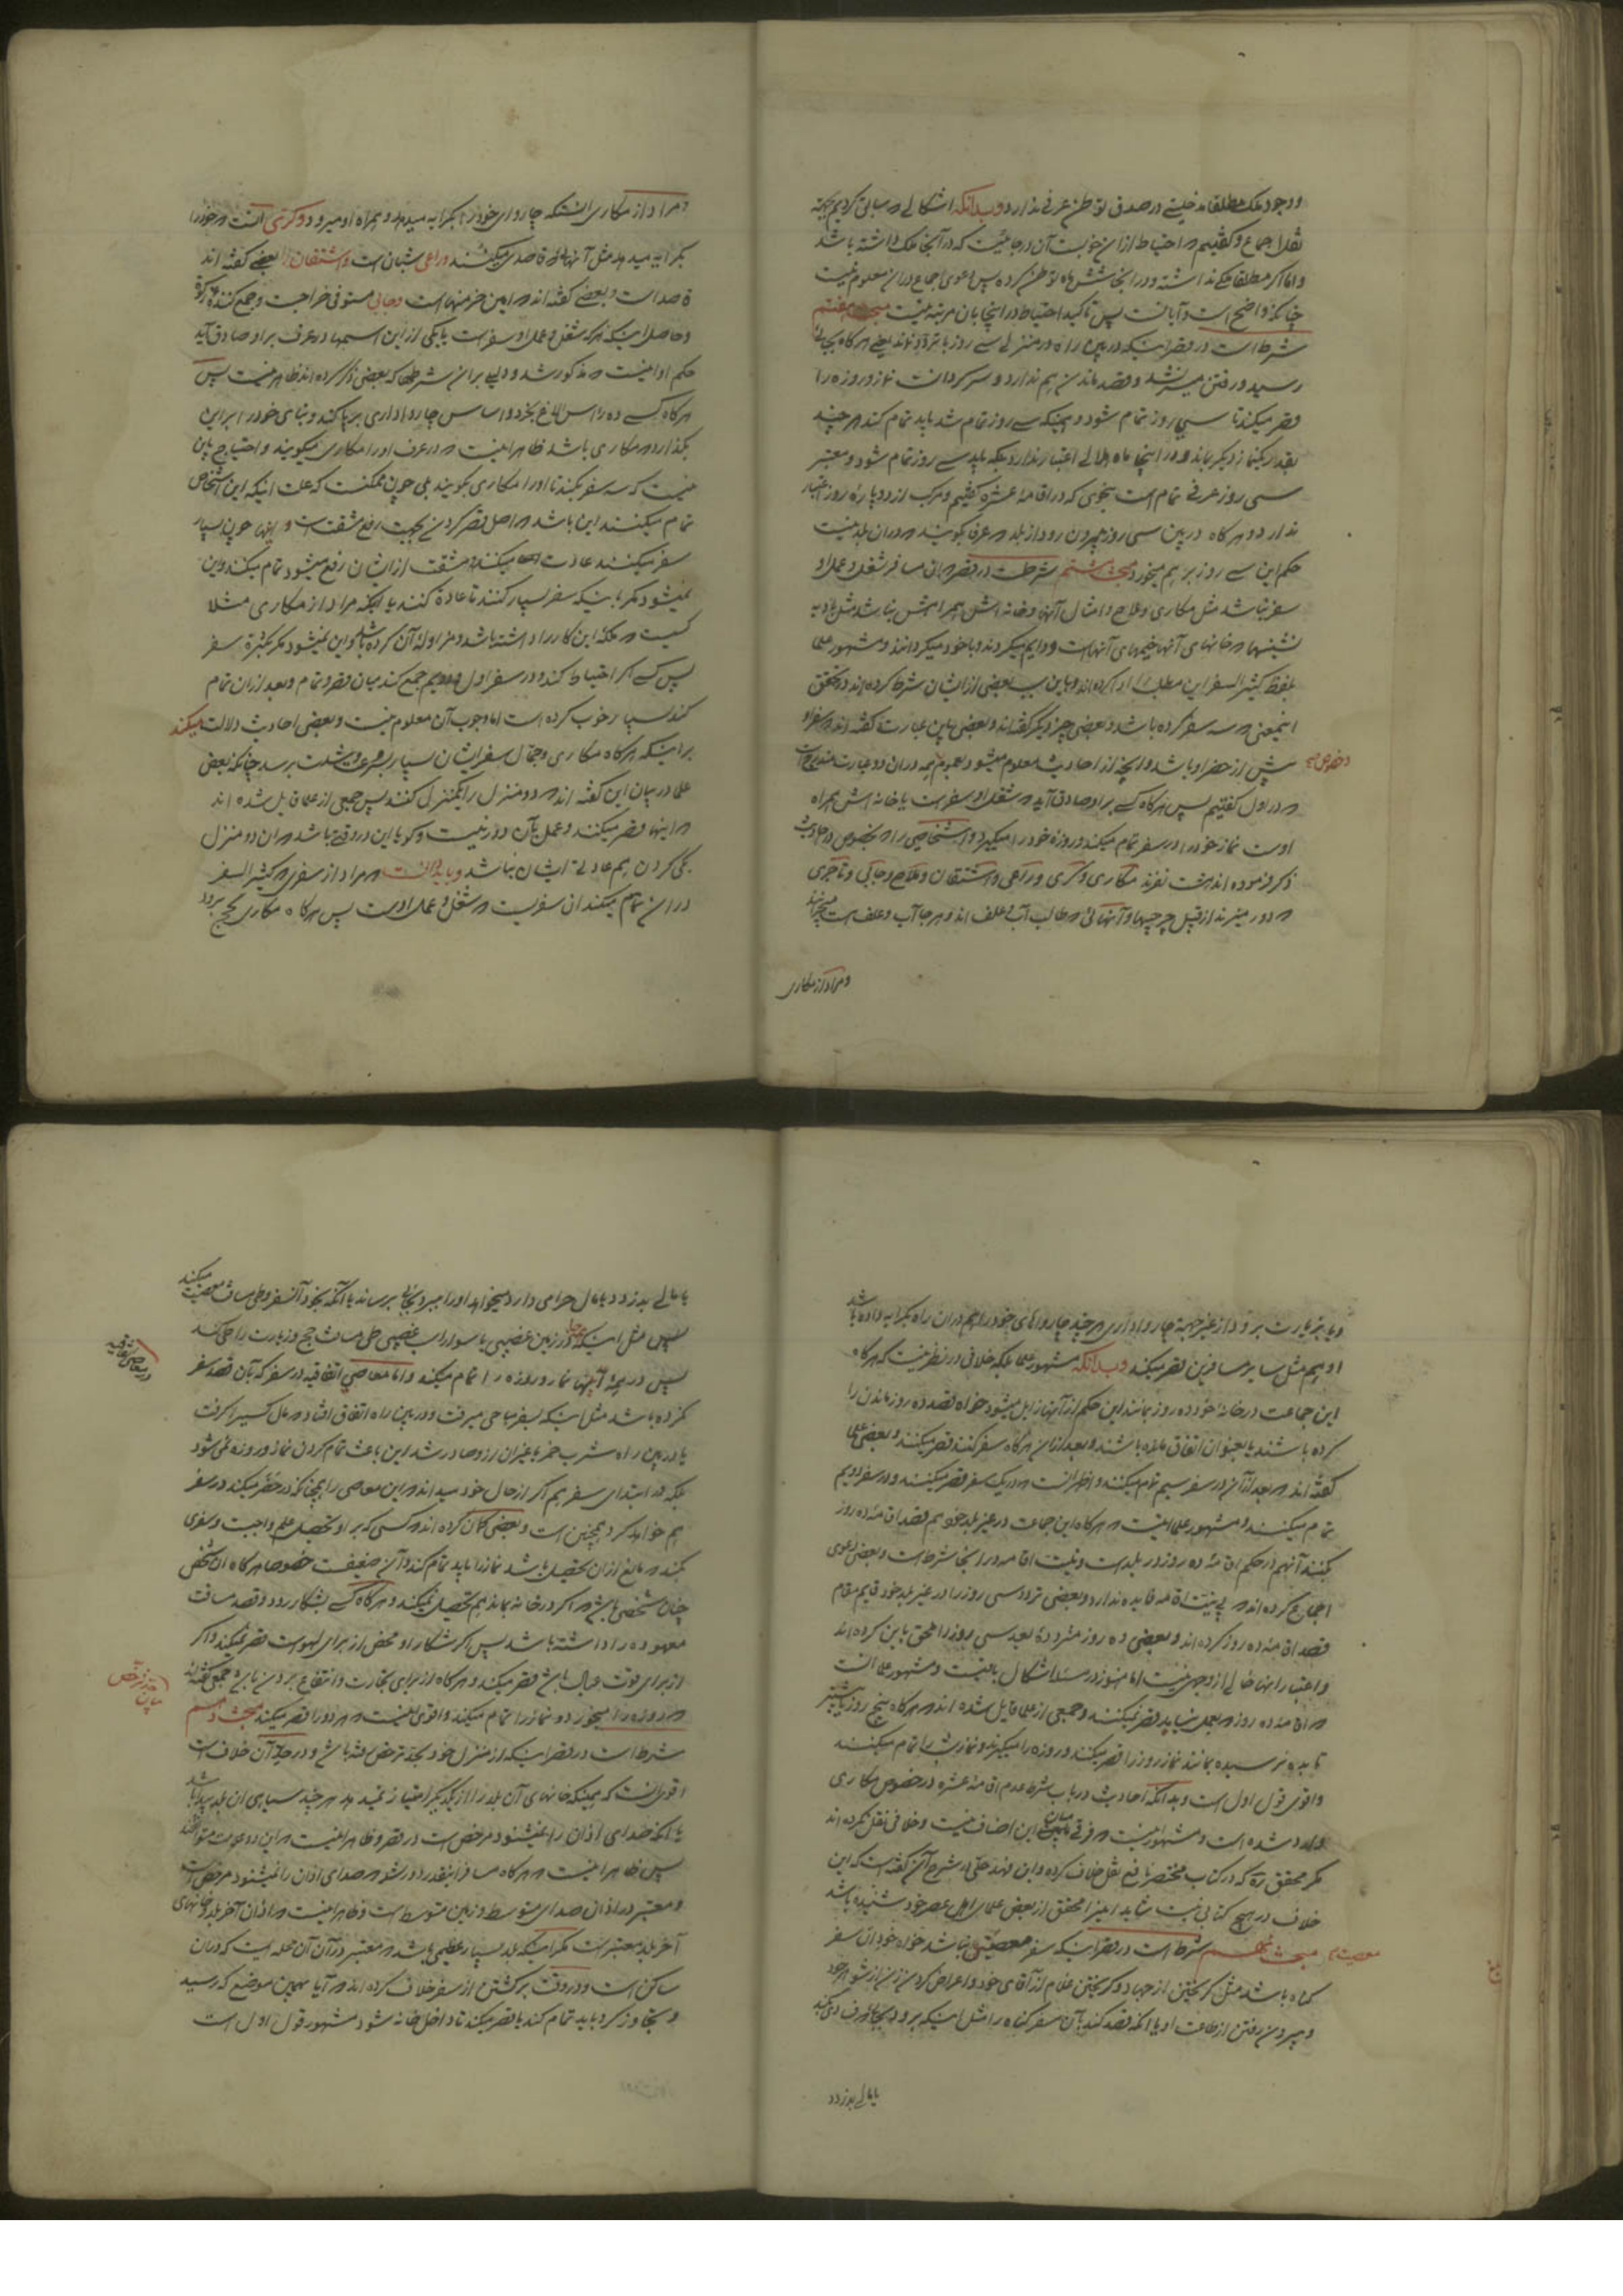 ووجود ملک مطلقا مدخلیتی در صدق توطن عرفی ندارد وبدانکه اشکالی در سابق کردیم بجهة
نقل اجماع و گفتیم که احتیاط از این خوبست آن در جائیست که در آنجا ملک داشته باشد
واما اگر مطلقا ملکی نداشته و در آنجا شش ماه توطن کرده پس دعوی اجماع در آن معلوم نیست
چنانکه واضح است و آیا پس تاکید احتیاط در اینجا بان مرتبه نیست مبحث هفتم
شرط است در قصر اینکه در بین راه در منزلی سی روز با تردد نماند یعنی هر گاه بجائی
رسید و رفتن میسر نشد وقصد ماندن هم ندارد و سرگردانست نماز و روزه را
قصر میکند تا سی روز تمام شود و همینکه سی روز تمام شد باید تمام کند هر چند
بقدر یکنماز دیگر بماند و در اینجا ماه هلالی اعتبار ندارد بلکه باید سی روز تمام شود و معتبر
سی روز عرفی تمام است بنحوی که در اقامهٔ عشره گفتیم و مرکب از دو پارهٔ روز اعتبار
ندارد و هر گاه در بین سی روز بیرون رود از بلد که عرفا بگویند که در آن بلد نیست
حکم این سی روز بر هم میخورد مبحث هشتم شرطست در قصر که آن مسافر شغل و عمل او
سفر نباشد مثل مکاری و ملاح و امثال آنها و خانه اش همراهش نباشد مثل بادیه
نشینها که خانهای آنها خیمهای آنهاست و دایم میگردند و با خود میگردانند و مشهور علما
بلفظ کثیر السفر این مطلب را ادا کرده‌اند و باین سبب بعضی از ایشان شرط کرده‌اند در تحقق
اینمعنی که سه سفر کرده باشد و بعضی چیز دیگر گفته‌اند و بعضی باین عبارت گفته‌اند که سفر او
بیش از حضر او باشد و آنچه از احادیث معلوم میشود در آن دو عبارت مندرج است
که در اول گفتیم پس هر گاه کسی بر او صادق آید که شغل او سفر است یا خانه اش همراه
اوست نماز خود را در سفر تمام میکند و روزه خود را میگیرد و اشخاصی را که بخصوص در احادیث
ذکر فرموده‌اند هشت نفرند مکاری و کری و راعی و اشتقان و ملاح و جابی و تاجری
که دور میزند از قبیل چرچیها و آنهائی که طالب آب و علف‌اند و هر جا آب و علف است میچرانند
ومراد از مکاری
ومراد از مکاری آنست که چاروای خود را بکرایه میدهد و همراه او میرود و کری آنست که خود را
بکرایه میدهد مثل آنها که قاصدی میکنند و راعی شبان است و اشتقان را بعضی گفته‌اند
قاصد است و بعضی گفته‌اند که امین خرمنها است و جابی مستوفی خراجست و جمع کننده زکوة
وحاصل اینکه هر که شغل و عمل او سفر است یا یکی از این اسمها در عرف بر او صادق آید
حکم او اینست که مذکور شد و دلیلی بر این شرطها که بعضی ذکر کرده‌اند ظاهر نیست پس
هر گاه کسی ده راس الاغ بخرد و اساس چارواداری بر پا کند و بنای خود را بر این
بگذارد که مکاری باشد ظاهر اینست که در عرف او را مکاری میگویند و احتیاج باین
نیست که سه سفر بکند تا او را مکاری بگویند بلی چون ممکنست که علت اینکه این اشخاص
تمام میکنند این باشد که اصل قصر کردن بجهت رفع مشقت است و اینها چون بسیار
سفر میکنند عادت میکنند و مشقت از ایشان رفع میشود تمام میکنند و این
نمیشود مگر باینکه سفر بسیار کنند تا عادة کنند یا اینکه مراد از مکاری مثلا
کسیست که ملکهٔ این کار را داشته باشد و مزاولهٔ آن کرده باشد و این نمیشود مگر بکثرة سفر
پس کسی اگر احتیاط کند و در سفر اول و دویم جمع کند میان قصر و تمام و بعد از آن تمام
کند بسیار خوب کرده است اما وجوب آن معلوم نیست و بعضی احادیث دلالت میکند
بر اینکه هر گاه مکاری و جمال سفر ایشان بسیار بسرعت و مشقت برسد چنانکه بعض
علما در بیان این گفته‌اند که دو منزل را یکمنزل کنند پس جمعی از علما قایل شده‌اند
که اینها قصر میکنند و عمل بآن دور نیست و گویا این در وقتی باشد که آن دو منزل
یکی کردن هم عادتی ایشان نباشد و باید دانست که مراد از سفری که کثیر السفر
در آن تمام میکند آن سفریست که شغل و عمل اوست پس هر گاه مکاری بحج برود
ویا بزیارت برود از غیر جهة چارواداری هر چند چارواهای خود را هم در آن راه بکرایه داده باشد
او هم مثل سایر مسافرین قصر میکند وبدانکه مشهور علما بلکه خلافی در نظر نیست که هر گاه
این جماعت در خانهٔ خود ده روز بمانند این حکم از آنها زایل میشود خواه قصد ده روز ماندن را
کرده باشند یا بعنوان اتفاق مانده باشند و بعد از آن هر گاه سفر کنند قصر میکنند و بعضی علما
گفته‌اند که بعد از آن در سفر سیم تمام میکنند و اظهر آنست که در یک سفر قصر میکنند و در سفر دویم
تمام میکنند و مشهور علما اینست که هر گاه این جماعت در غیر بلد خود هم قصد اقامهٔ ده روز
بکنند آنهم در حکم اقامهٔ ده روز در بلد است و نیت اقامه در اینجا شرط است و بعضی دعوی
اجماع کرده‌اند که بی نیت اقامه فایده ندارد و بعضی تردد سی روز را در غیر بلد خود قایم مقام
قصد اقامهٔ ده روز کرده‌اند و بعضی ده روز متردد بعد سی روز را ملحق باین کرده‌اند
واعتبار اینها خالی از وجهی نیست اما هنوز در مسئله اشکال باقیست و مشهور علما آنست
که اقامهٔ ده روز که بعمل نیاید قصر نمیکنند و جمعی از علما قایل شده‌اند که هر گاه پنج روز یا بیشتر
تا بده نرسیده بمانند نماز روز را قصر میکنند و روزه را میگیرند و نماز شب را تمام میکنند
واقوی قول اول است وبدانکه احادیث در باب شرط عدم اقامهٔ عشره در خصوص مکاری
وارد شده است و مشهور اینست که فرقی میان این اصناف نیست و خلافی نقل نکرده‌اند
مگر محقق ره که در کتاب مختصر نافع نقل خلاف کرده و ابن فهد حلی در شرح آن گفته است که این
خلاف در هیچ کتابی نیست شاید میرزا محقق از بعض علمای اهل عصر خود شنیده باشد
مبحث نهم شرط است در قصر اینکه سفر معصیت نباشد خواه خود آن سفر
گناه باشد مثل گریختن از جهاد و گریختن غلام از آقای خود و اعراض کردن زن از شوهر خود
و بیرون رفتن از طاعت او یا آنکه قصد کند بآن سفر گناه را مثل اینکه برود بجائی که
یا مالی بدزدد
یا مالی بدزدد یا مال حرامی دارد میخواهد او را ببرد بجائی برساند یا آنکه بخود آنسفر وطی مسافت معصیت میکند
پس مثل اینکه در زمین غصبی یا سوار اسب غصبی طی مسافت حج و زیارت را طی کند
پس در همهٔ اینها نماز و روزه را تمام میکند و اما معاصی اتفاقیه در سفر که بآن قصد سفر
نکرده باشد مثل اینکه بسفر مباحی میرفت و در بین راه اتفاق افتاد که مال کسی را گرفت
یا در بین راه شرب خمر یا غیر آن از او صادر شد این باعث تمام کردن نماز و روزه نمی شود
بلکه در ابتدای سفر هم اگر از حال خود میداند که این معاصی را همچنانکه در حضر میکند در سفر
هم خواهد کرد همچنین است و بعضی گمان کرده‌اند که کسی که بر او تحصیل علم واجبست و سفری
بکند که مانع از آن تحصیل باشد نماز را باید تمام کند و آن ضعیفست خصوصا هر گاه آن شخص
چنان شخصی باشد که اگر در خانه بماند هم تحصیل نمیکند و هر گاه کسی بشکار رود و قصد مسافت
معهوده را داشته باشد پس اگر شکار او محض از برای لهو است قصر نمیکند و اگر
از برای قوت عیال باشد قصر میکند و هر گاه از برای تجارت و انتفاع بردن باشد جمعی گفته‌اند
که روزه را میخورد و نماز را تمام میکند و اقوی اینست که هر دو را قصر میکند مبحث دهم
شرط است در قصر اینکه از منزل خود بحد ترخص رفته باشد و در حد آن خلاف است
اقوی آنست که همینکه خانهای آن بلد را از یکدیگر امتیاز نمیدهد هر چند سیاهی آن بلد پیدا باشد
یا آنکه صدای اذان را نمیشنود مرخص است در قصر و ظاهر اینست که این دو علامت
پس ظاهر اینست که هر گاه مسافر اینقدر دور شود که صدای اذان را نمیشنود مرخص است
و معتبر در اذان صدای متوسط و زمین متوسط است و ظاهر اینست که اذان آخر بلد و خانهای
آخر بلد معتبر است مگر اینکه بلد بسیار عظیمی باشد که معتبر در آن آن محله است که در آن
ساکن است و در وقت برگشتن از سفر خلاف کرده‌اند که آیا بهمین موضع که رسید
و تجاوز کرد باید تمام کند یا قصر میکند تا داخل خانه شود مشهور قول اول است